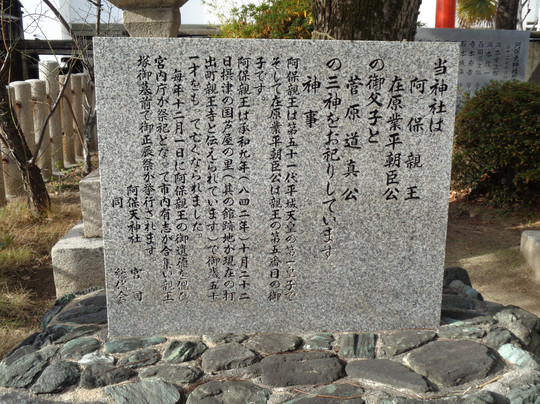 当神社は
阿保親王
在原業平朝臣公
の御父子と
菅原道真公
の三神をお祀りしています
神事
阿保親王は第五十一代平城天皇の第一皇子で
そして在原業平朝臣公は親王の第五番目の御
子です。
阿保親王は承和九年(八四二年)十月二十二
日摂津の国芦屋の里(其の館跡地が現在の打
出町親王寺と伝えられています)で御歳五十
一才をもって亡くなられました
毎年十二月一日に阿保親王の御遺徳を偲び
宮司が祭祀となって市内有志が合集い親王
塚御墓前で御正辰祭が挙行されます
阿保天神社 宮司
同 総代会